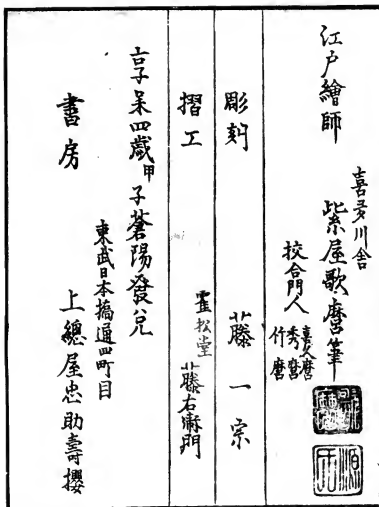 江戸繪師
喜多川舎
紫屋歌麿筆
校合門人
喜久麿
秀麿
竹麿
彫刻
藤一宗
摺工
霍松堂
藤右衛門
享和四歳甲子蒼陽發兌
東武日本橋通四町目
書房
上總屋忠助壽櫻